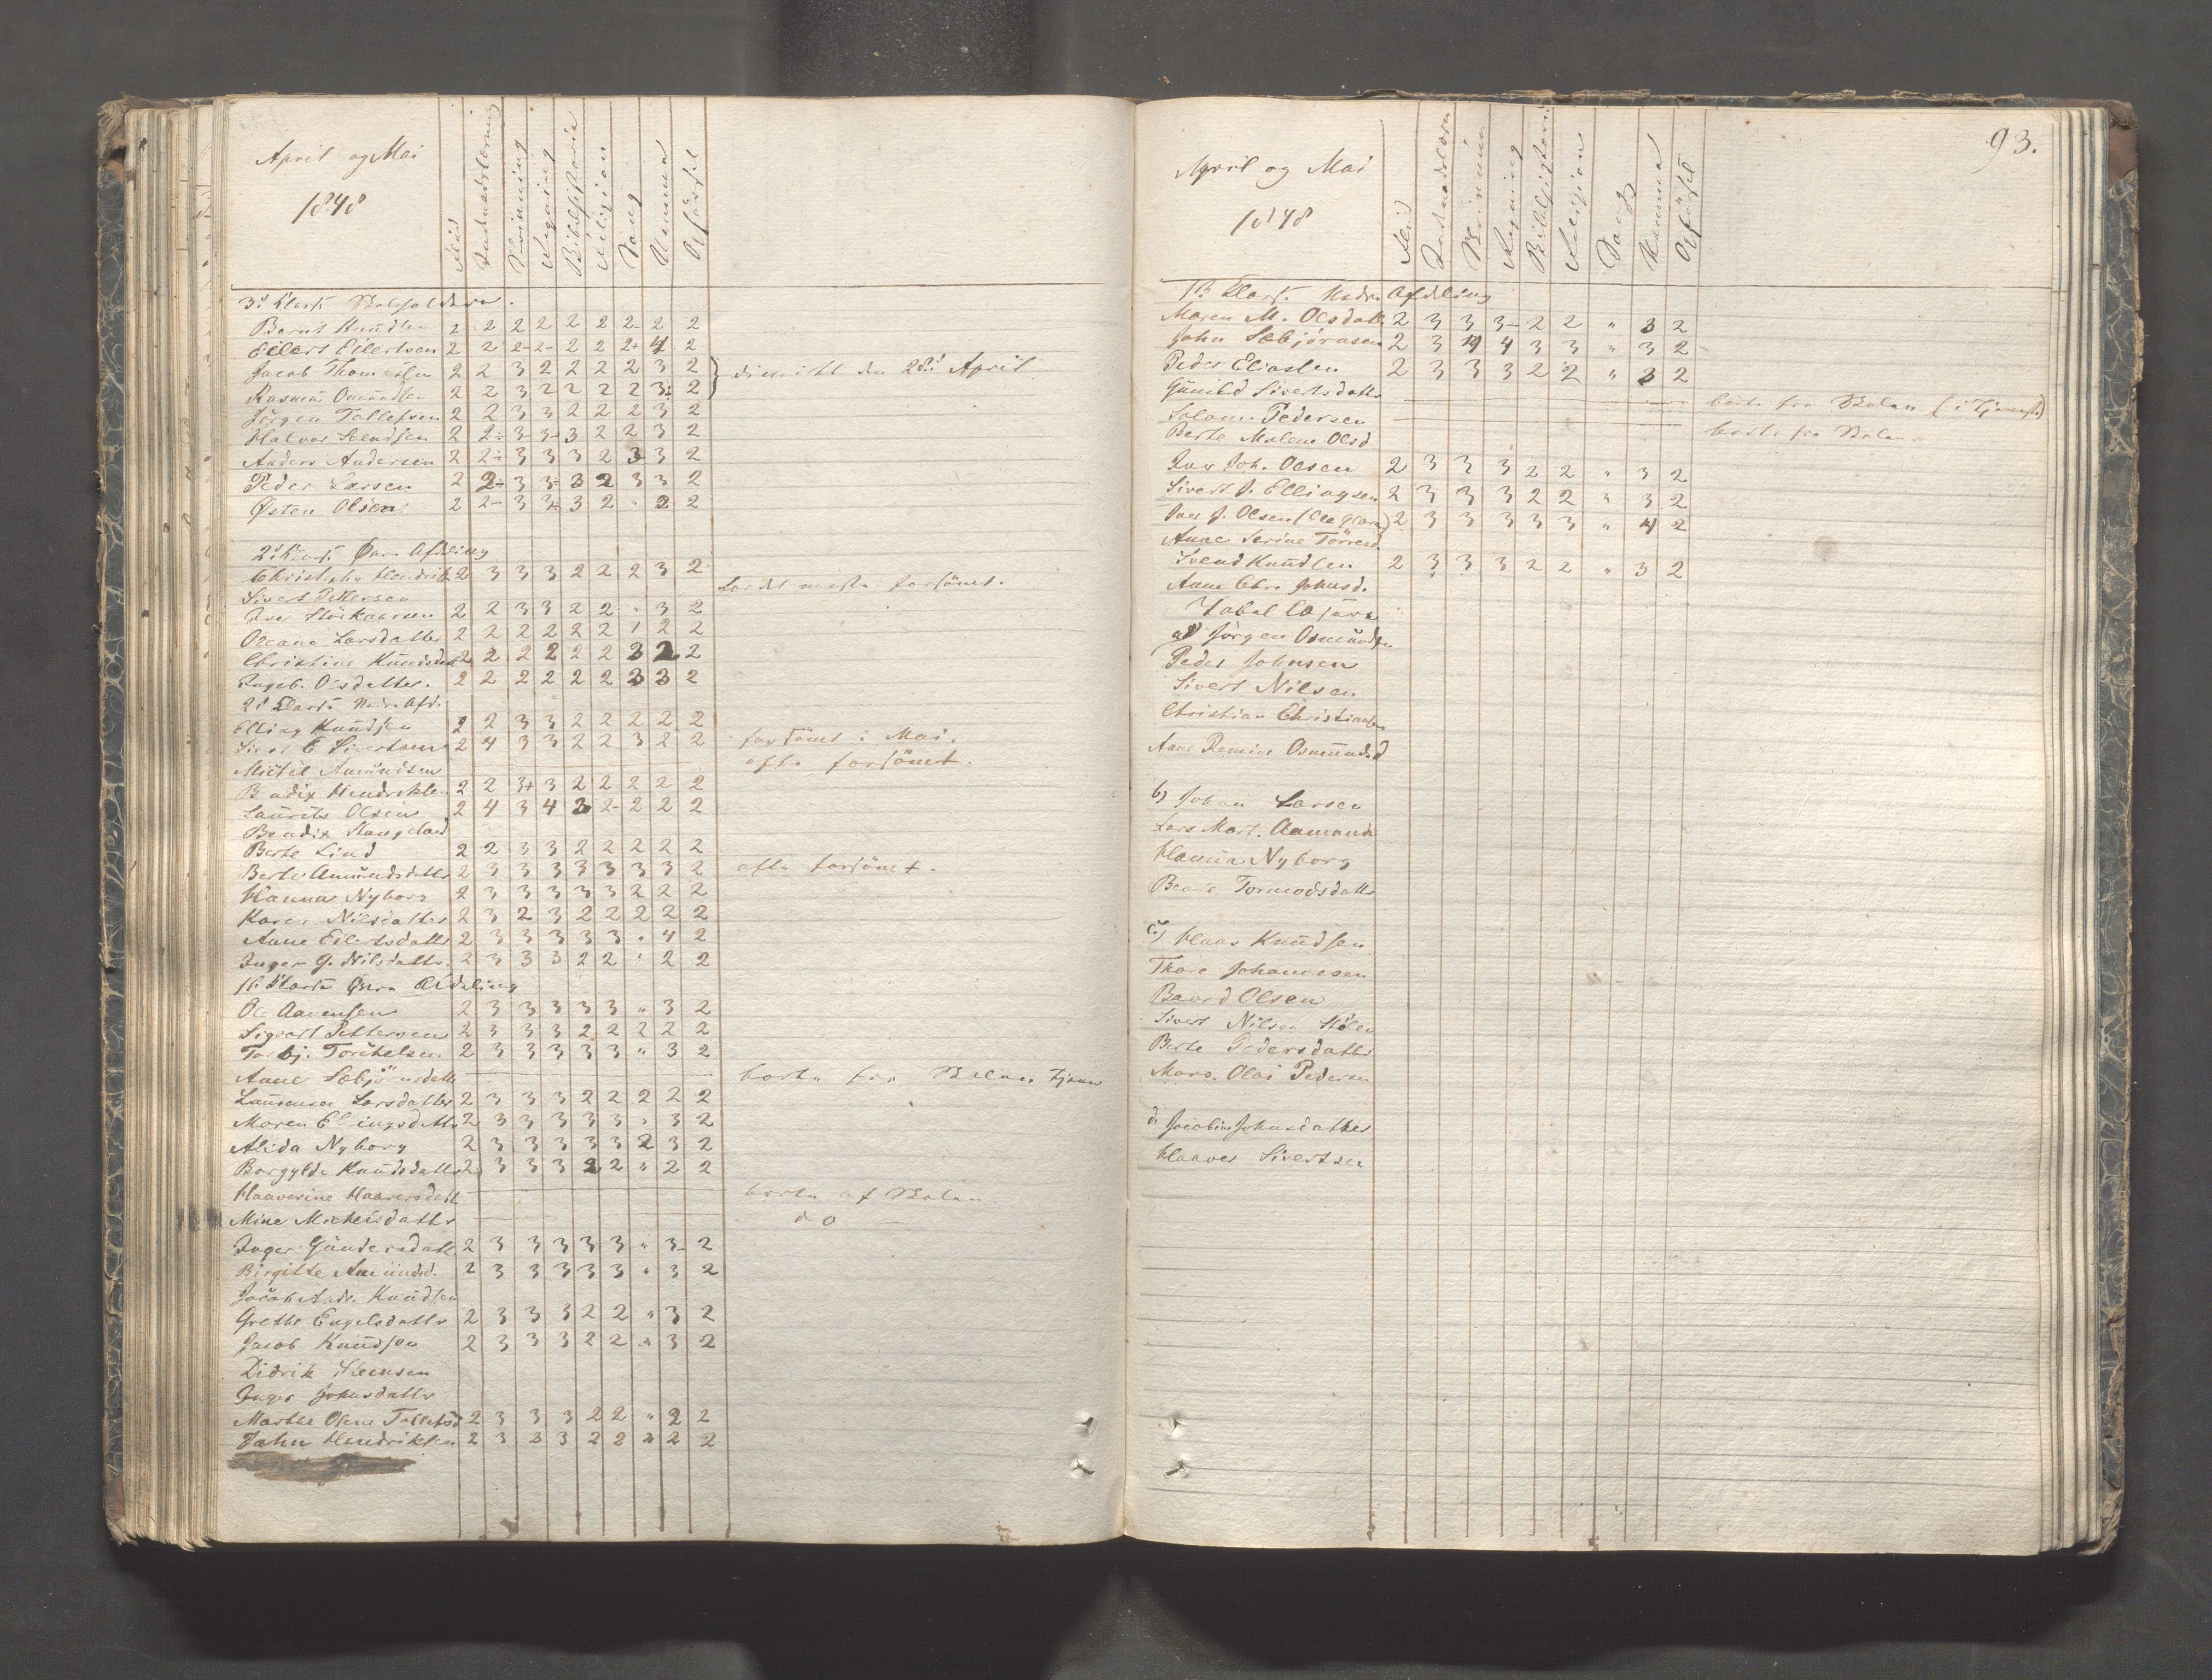 April og Mai
1848
Flid
Indenadslæsning
Skrivning
Regning
Bibelhistorie
Religion
Sang
Nemme
Opførsel
3die Klasse
Bernt Knudsen 2 2 2 2 2 2 2- 2 2
Eilert Eilertsen 2 2 2- 2- 2 2 2+ 4 2
Jacob Thomassen 2 2 3 2 2 2 2 3 2
dimitt den 28de April
Rasmus Omundsen 2 2 3 2 2 2 2 3÷ 2
Jörgen Tollefsen 2 2 3 3 2 2 2 3 2
Halvor Svendsen 2 2÷ 3 3- 3 2 2 3 2
Anders Andersen 2 2÷ 3 3 3 2 3 3 2
Peder Larsen 2 2÷ 3 3÷ 3 2 3 3 2
Østen Olsen 2 2- 3 3÷ 3 2 " 2 2
2d Klasse Øvre Afdeling
Christophe Hendriks 2 3 3 3 2 2 2 3 2
Sivert Pettersen
for det meste forsömt.
Iver Störkaarsen 2 2 3 3 2 2 " 3 2
Oleane Larsdatter 2 2 2 2 2 2 1 2 2
Christine Knudsdatt 2 2 2 2 2 2 3 2 2
Ingeb. Olsdatter. 2 2 2 2 2 2 3 3 2
2d Klasse Nedre Afd.
Elling Knudsen 2 2 3 3 2 2 2 2 2
Sivert E. Sivertsen 2 4 3 3 2 2 3 2 2 forsömt i Mai.
Mickel Amundsen ofte forsömt.
Bendix Hendriksen 2 2 3+ 3 2 2 2 2 2
Laurits Olsen 2 4 3 4 3 2- 2 2 2
Bendix Stangeland
Berte Lind 2 2 3 3 2 2 2 2 2
Berte Amundsdatter 2 3 3 3 3 3 3 3 2 ofte forsömt.
Hanna Nyborg 2 3 3 3 3 3 2 2 2
Karen Nilsdatter 2 3 2 3 2 2 2 2 2
Anne Eilertsdatter 2 3 3 3 3 3 " 4 2
Inger G. Nilsdatter 2 3 3 3 2 2 " 2 2
1ste Klasse Øvre Afdeling
Ole Aanensen 2 3 3 3 3 3 " 3 2
Sigvart Pettersen 2 3 3 3 2 2 2 2 2
Torbj. Torkelsen 2 3 3 3 3 3 " 3 2
Anne Sæbjörnsdatter borte fra Skolen
Laurense Larsdatter 2 3 3 3 2 2 2 2 2
Maren Ellingsdatter 2 3 3 3 3 3 " 3 2
Alida Nyborg 2 3 3 3 3 3 2 3 2
Borgylde Knudsdatter 2 3 3 3 2 2 " 2 2
Haaverine Haaversdatt borte af Skolen
Mine Mickelsdatter do
Inger Gundersdatt 2 3 3 3 3 3 " 3- 2
Birgitte Amundsd. 2 3 3 3 3 3 " 3 2
Jacob Andr. Knudsen
Grethe Engelsdatter 2 3 3 3 2 2 " 3 2
Jacob Knudsen 2 3 3 3 2 2 " 3 2
Didrik Svensen
Inger Johnsdatter
Marthe Oline Tollefsd 2 3 3 3 2 2 " 2 2
John Hendriksen 2 3 3 3 2 2 2 2 2
93.
April og Mai
1848
Flid
Indenadslæsn
Skrivning
Regning
Bibelhistori
Religion
Sang
Nemme
Opførsel
1ste Klasse. Nedre Afdeling
Maren M. Olsdatt 2 3 3 3- 2 2 " 3 2
John Sæbjörnsen 2 3 4 4 3 3 " 3 2
Peder Eliassen 2 3 3 3 2 2 " 3 2
Gunild Sivertsdatter borte fra Skolen (i Tjeneste)
Salom. Pedersen
Berte Malene Olsd. borte fra Skolen
Iver Joh. Olsen 2 3 3 3 2 2 " 3 2
Sivert J. Ellingsen 2 3 3 3 2 2 " 3 2
Iver J. Olsen 2 3 3 3 3 3 " 4 2
Anne Serine Törresd.
Svend Knudsen 2 3 3 3 2 2 " 3 2
Anne Chr. Johnsd.
Tabel Classe
a) Jörgen Osmundsen
Peder Johnsen
Sivert Nilsen
Christian Christiansen
Anne Remine Osmundsd
b) Johan Larsen
Lars Mart. Aamund
Hanna Nyborg
Berte Tormodsdatter
c.) Hans Knudsen
Thore Johannesen
Baord Olsen
Sivert Nilsen Hölen
Berte Pedersdatter
Mons. Olai Pedersen
d. Jacobine Johnsdatter
Haaver Sivertsen